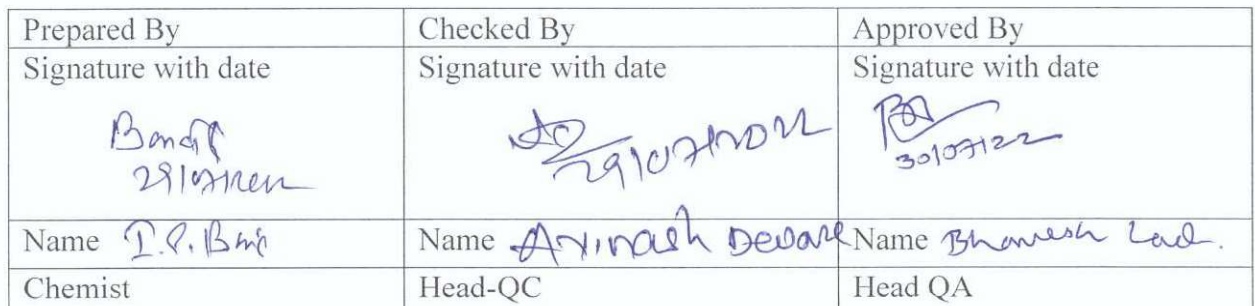 Prepared By Checked By Approved By
Signature with date Signature with date Signature with date
29/07/2022 30/07/22
Name Name Avinash Deware Name Bhavesh Lad.
Chemist Head-QC Head QA